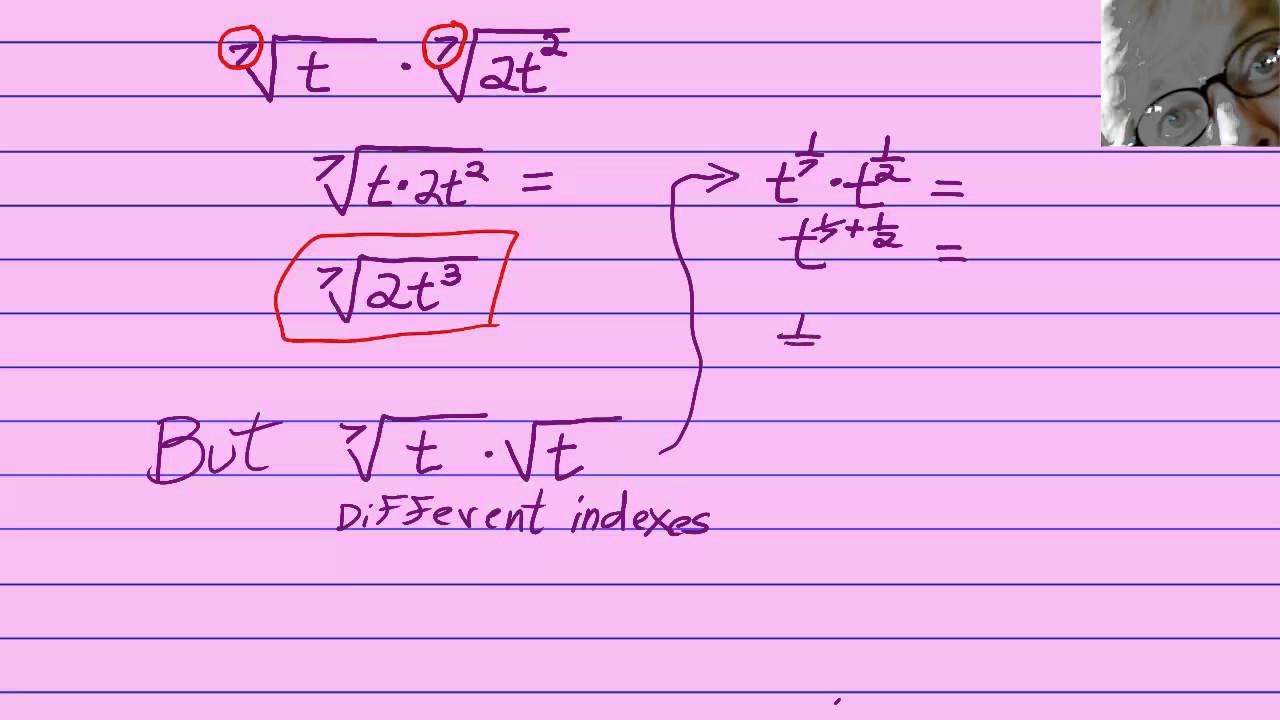 ⁷√t · ⁷√2t²
⁷√t·2t² =
⁷√2t³
But ⁷√t · √t
Different indexes
t^1/7 · t^1/2 =
t^1/7+1/2 =
1